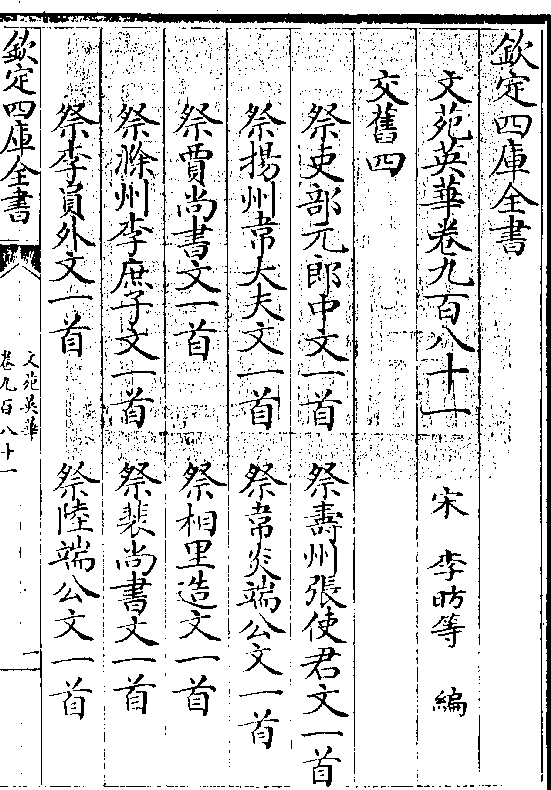 欽定四庫全書
文苑英華卷九百八十一
宋 李昉等 編
交舊四
祭吏部元郎中文一首 祭壽州張使君文一首
祭揚州韋大夫文一首 祭韋炎端公文一首
祭賈尚書文一首 祭相里造文一首
祭滁州李庶子文一首 祭裴尚書文一首
祭李員外文一首 祭陸端公文一首
欽定四庫全書
文苑英華
卷九百八十一
一